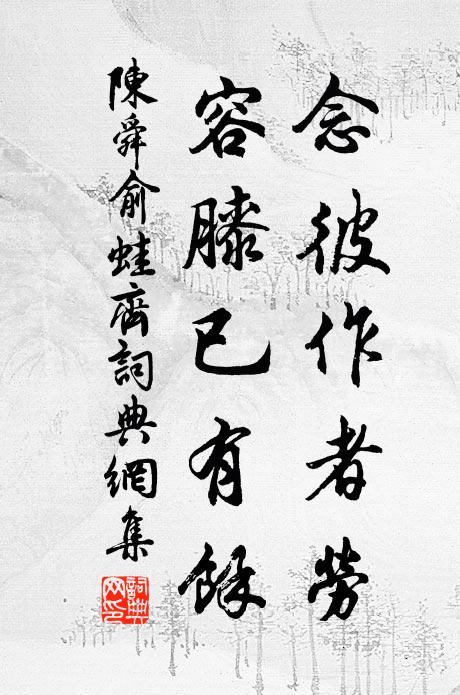 念彼作者勞
容膝已有餘
陳舜俞蛙齋詞典網集
詞典網印